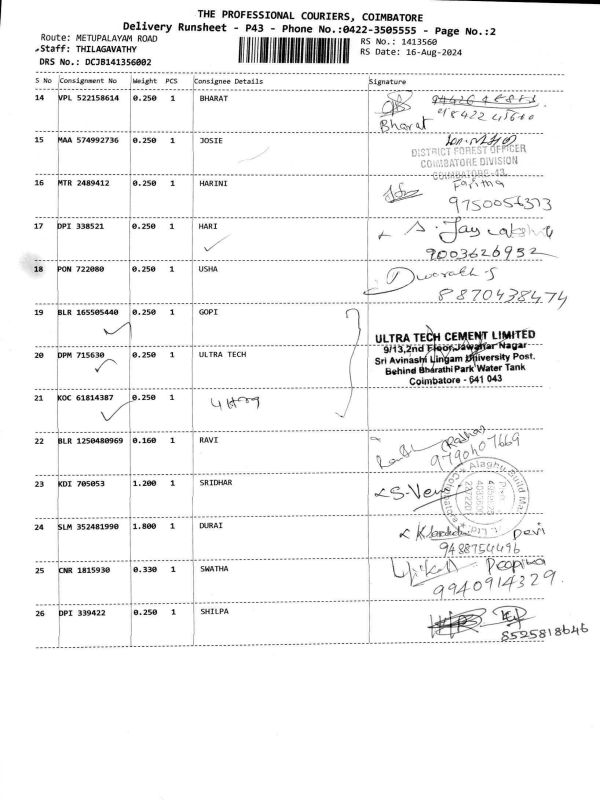 THE PROFESSIONAL COURIERS, COIMBATORE
Delivery Runsheet - P43 - Phone No.:0422-3505555 - Page No.:2
Route: METUPALAYAM ROAD
RS No.: 1413560
Staff: THILAGAVATHY
RS Date: 16-Aug-2024
DRS No.: DCJB141356002
S No Consignment No Weight PCS Consignee Details Signature
14 VPL 522158614 0.250 1 BHARAT
Bharat
15 MAA 574992736 0.250 1 JOSIE
DISTRICT FOREST OFFICER
COIMBATORE DIVISION
COIMBATORE-43.
16 MTR 2489412 0.250 1 HARINI
Faritha
9750056373
17 DPI 338521 0.250 1 HARI
9003626952
18 PON 722080 0.250 1 USHA
8870438474
19 BLR 165505440 0.250 1 GOPI
ULTRA TECH CEMENT LIMITED
9/13,2nd Floor,Jawahar Nagar
20 DPM 715630 0.250 1 ULTRA TECH
Sri Avinashi Lingam University Post.
Behind Bharathi Park Water Tank
Coimbatore - 641 043
21 KOC 61814387 0.250 1
22 BLR 1250480969 0.160 1 RAVI
9790407669
23 KDI 705053 1.200 1 SRIDHAR
24 SLM 352481990 1.800 1 DURAI
Devi
9488754496
25 CNR 1815930 0.330 1 SWATHA
9940914329
26 DPI 339422 0.250 1 SHILPA
8525818646